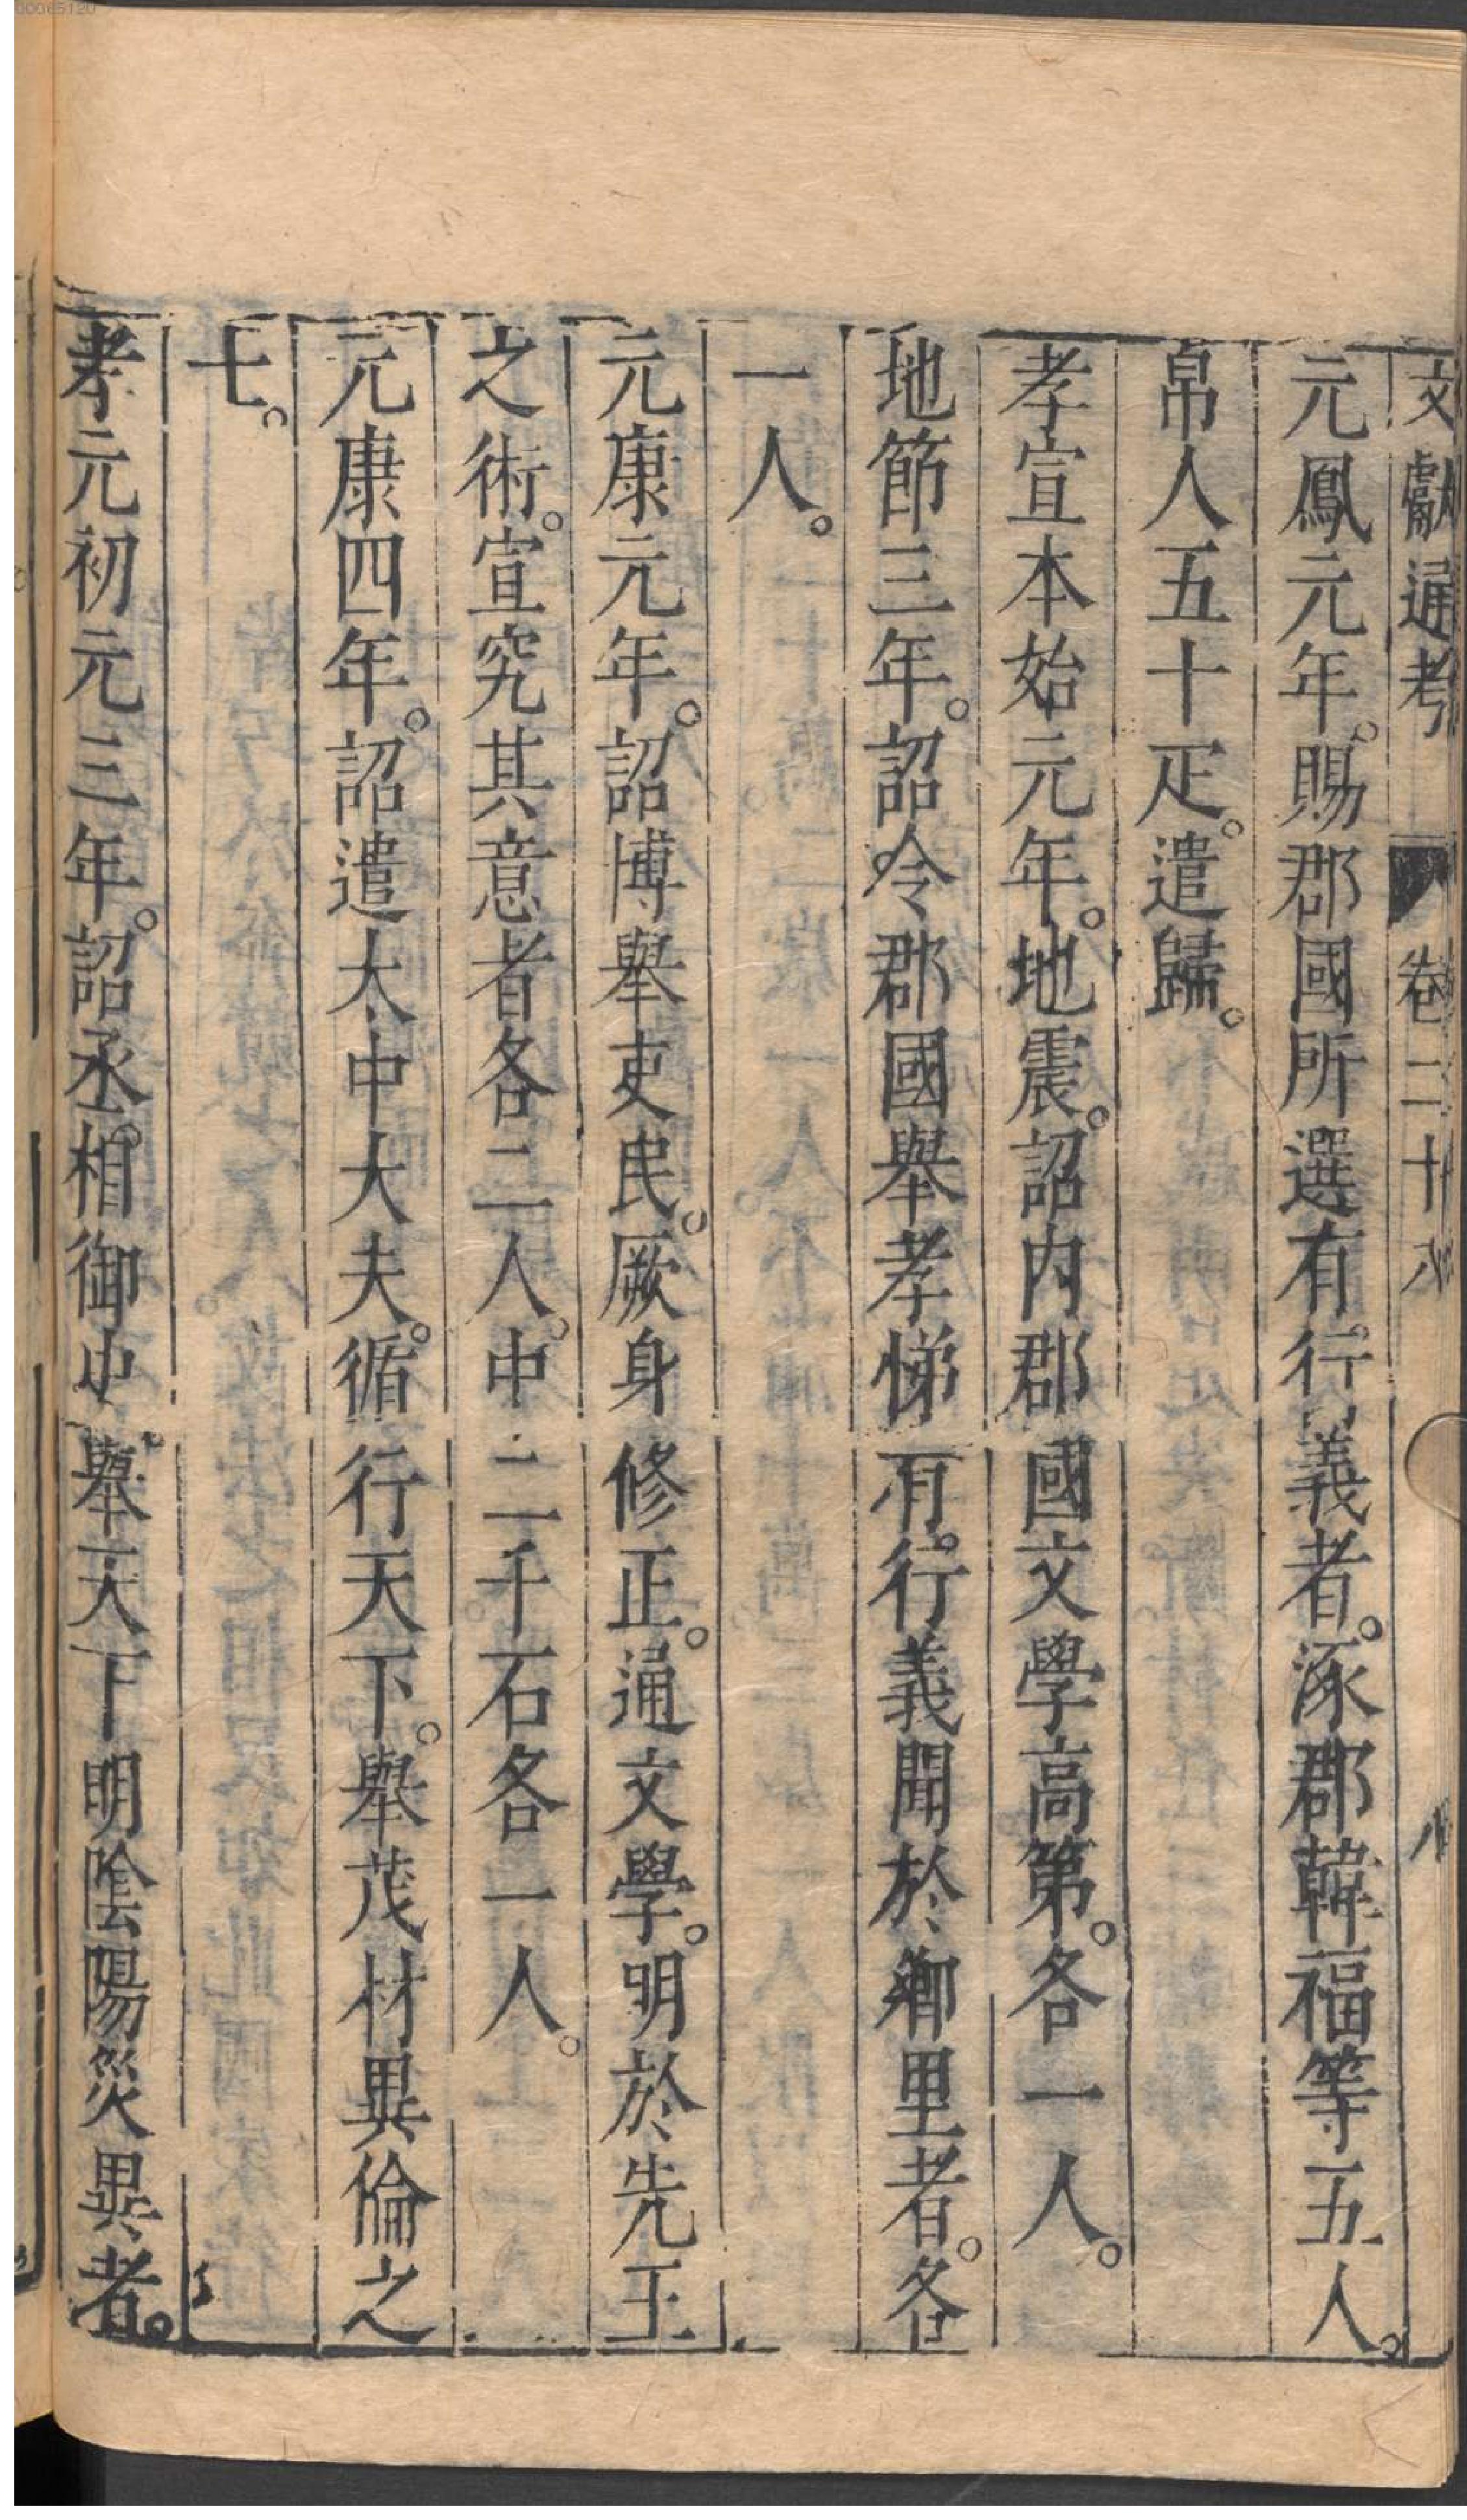 00065120
文獻通考 卷二十八
元鳳元年。賜郡國所選有行義者。涿郡韓福等五人。
帛人五十疋。遣歸。
孝宣本始元年。地震。詔內郡國文學高第。各一人。
地節三年。詔令郡國舉孝悌有行義聞於鄉里者。各
一人。
元康元年。詔博舉吏民。厥身修正。通文學。明於先王
之術。宣究其意者各二人。中二千石各一人。
元康四年。詔遣大中大夫。循行天下。舉茂材異倫之
士。
孝元初元三年。詔丞相御史。舉天下明陰陽災異者。